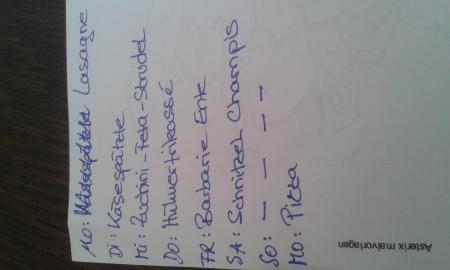 MO: Käsespätzle Lasagne
Di: Käsespätzle
Mi: Zuchini-Feta-Strudel
DO: Hühnerfrikassé
FR: Barbarie Ente
SA: Schnitzel Champis
SO: - - - -
MO: Pizza
Asterix malvorlagen